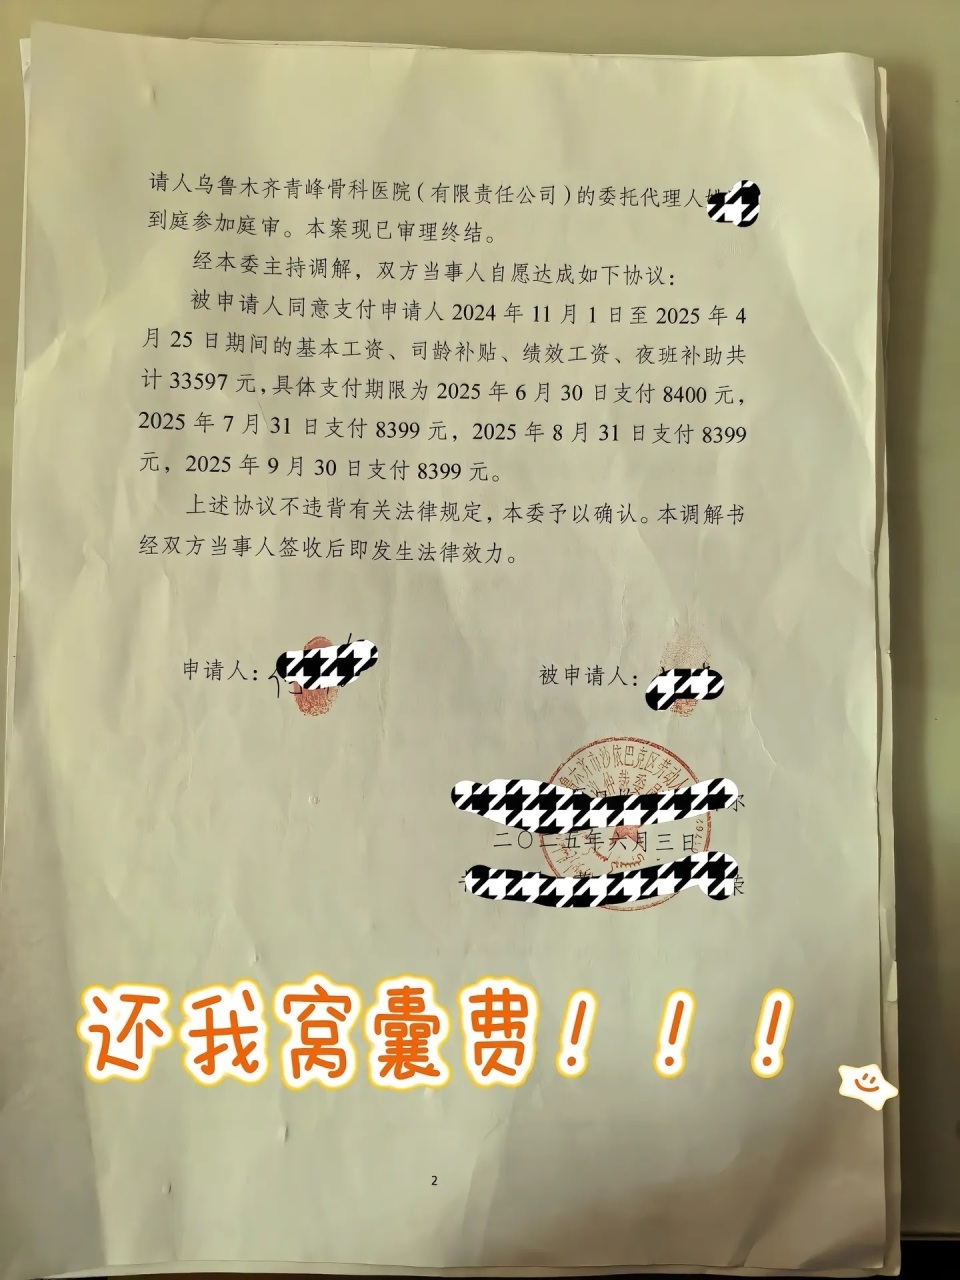 请人乌鲁木齐青峰骨科医院（有限责任公司）的委托代理人姚
到庭参加庭审。本案现已审理终结。
经本委主持调解，双方当事人自愿达成如下协议：
被申请人同意支付申请人 2024 年 11 月 1 日至 2025 年 4
月 25 日期间的基本工资、司龄补贴、绩效工资、夜班补助共
计 33597 元，具体支付期限为 2025 年 6 月 30 日支付 8400 元，
2025 年 7 月 31 日支付 8399 元，2025 年 8 月 31 日支付 8399
元，2025 年 9 月 30 日支付 8399 元。
上述协议不违背有关法律规定，本委予以确认。本调解书
经双方当事人签收后即发生法律效力。
申请人：
被申请人：
鲁木齐市沙依巴克区劳动人
仲裁委
尔
二〇二五年六月三日
荣
还我窝囊费！！！
2